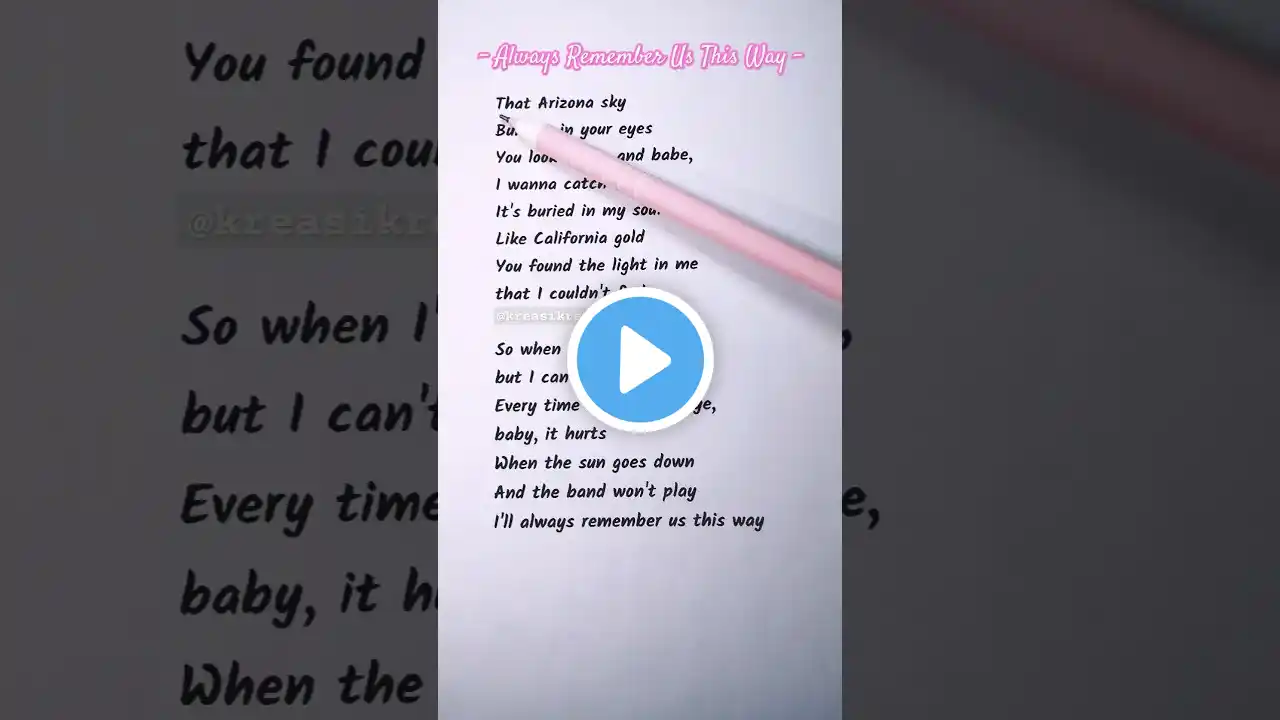 - Always Remember Us This Way -
That Arizona sky
in your eyes
You and babe,
I wanna catch
It's buried in my soul
Like California gold
You found the light in me
that I couldn't
@kreasikre
So when
but I can
Every time
baby, it hurts
When the sun goes down
And the band won't play
I'll always remember us this way
You found
that I
@kreasikr
So when
but I can't
Every time
baby, it
When the